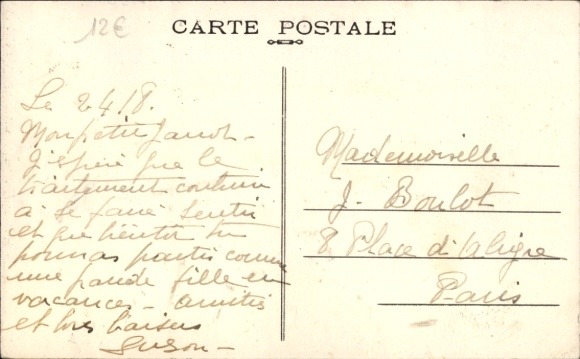 12€
CARTE POSTALE
Le 24/8.
Mon petit
J'espère que le
traitement continue
à se faire sentir
et que bientôt tu
pourras partir comme
une grande fille en
vacances - amitiés
et bons baisers
Suzon -
Mademoiselle
J. Boulot
8 Place d'
Paris